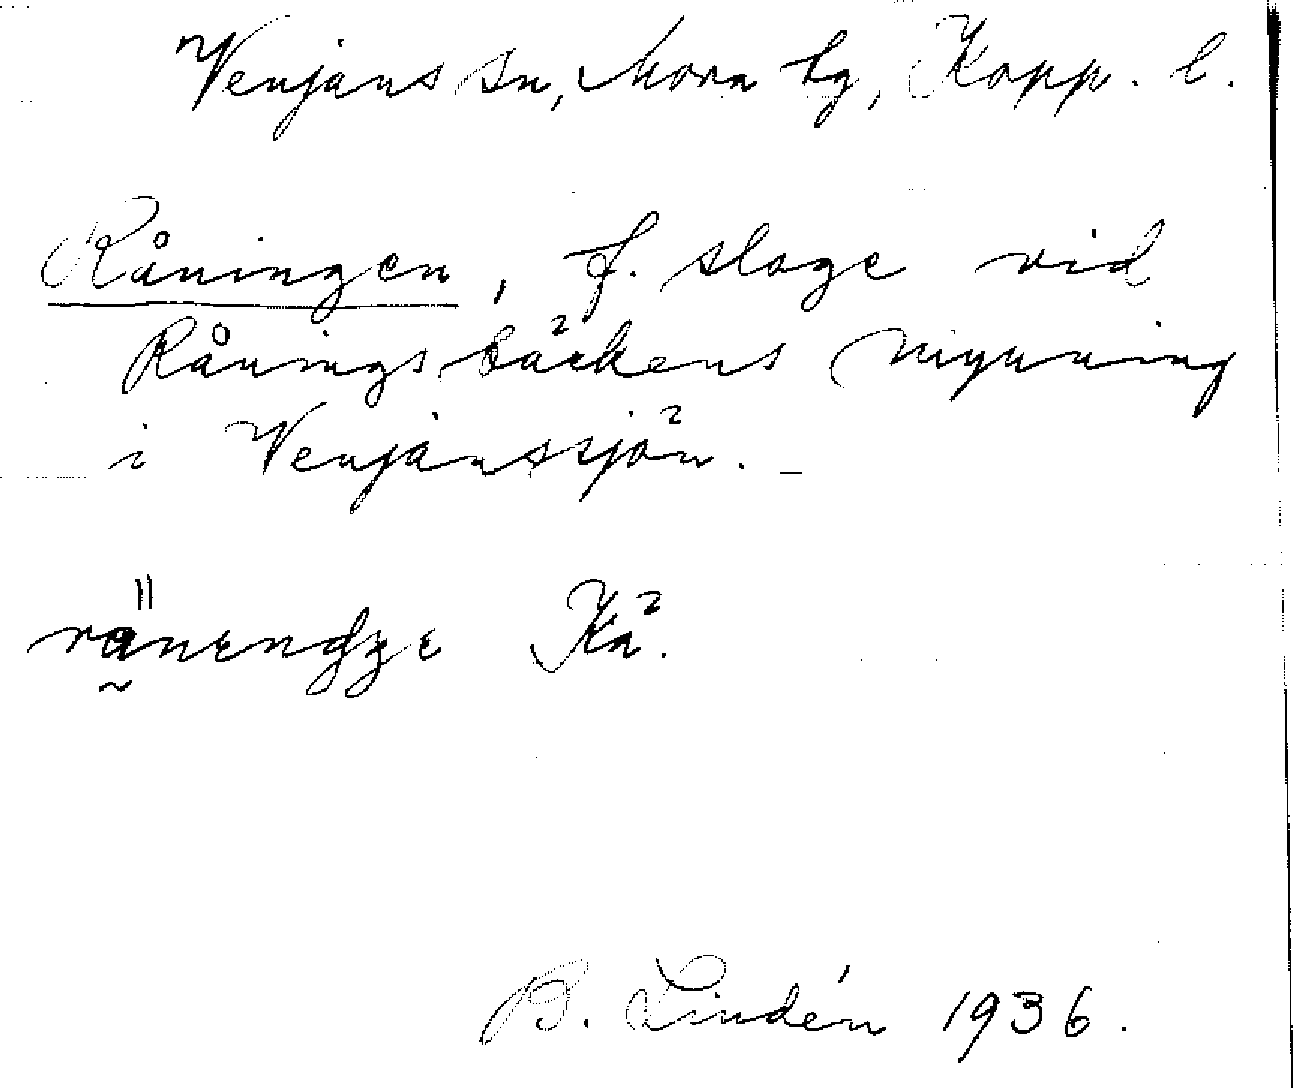 Venjans sn, Mora tg, Kopp. l.
Råningen, f. sloge vid
Råningsbäckens mynning
i Venjanssjön. –
Kä.
B. Lindén 1936.